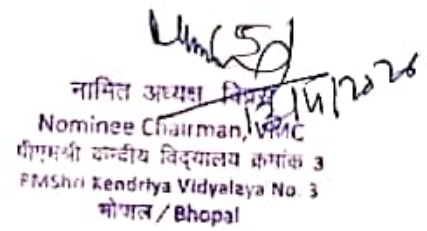 नामित अध्यक्ष
Nominee Chairman, VMC
पीएमश्री केन्द्रीय विद्यालय क्रमांक 3
PMShri Kendriya Vidyalaya No. 3
भोपाल / Bhopal